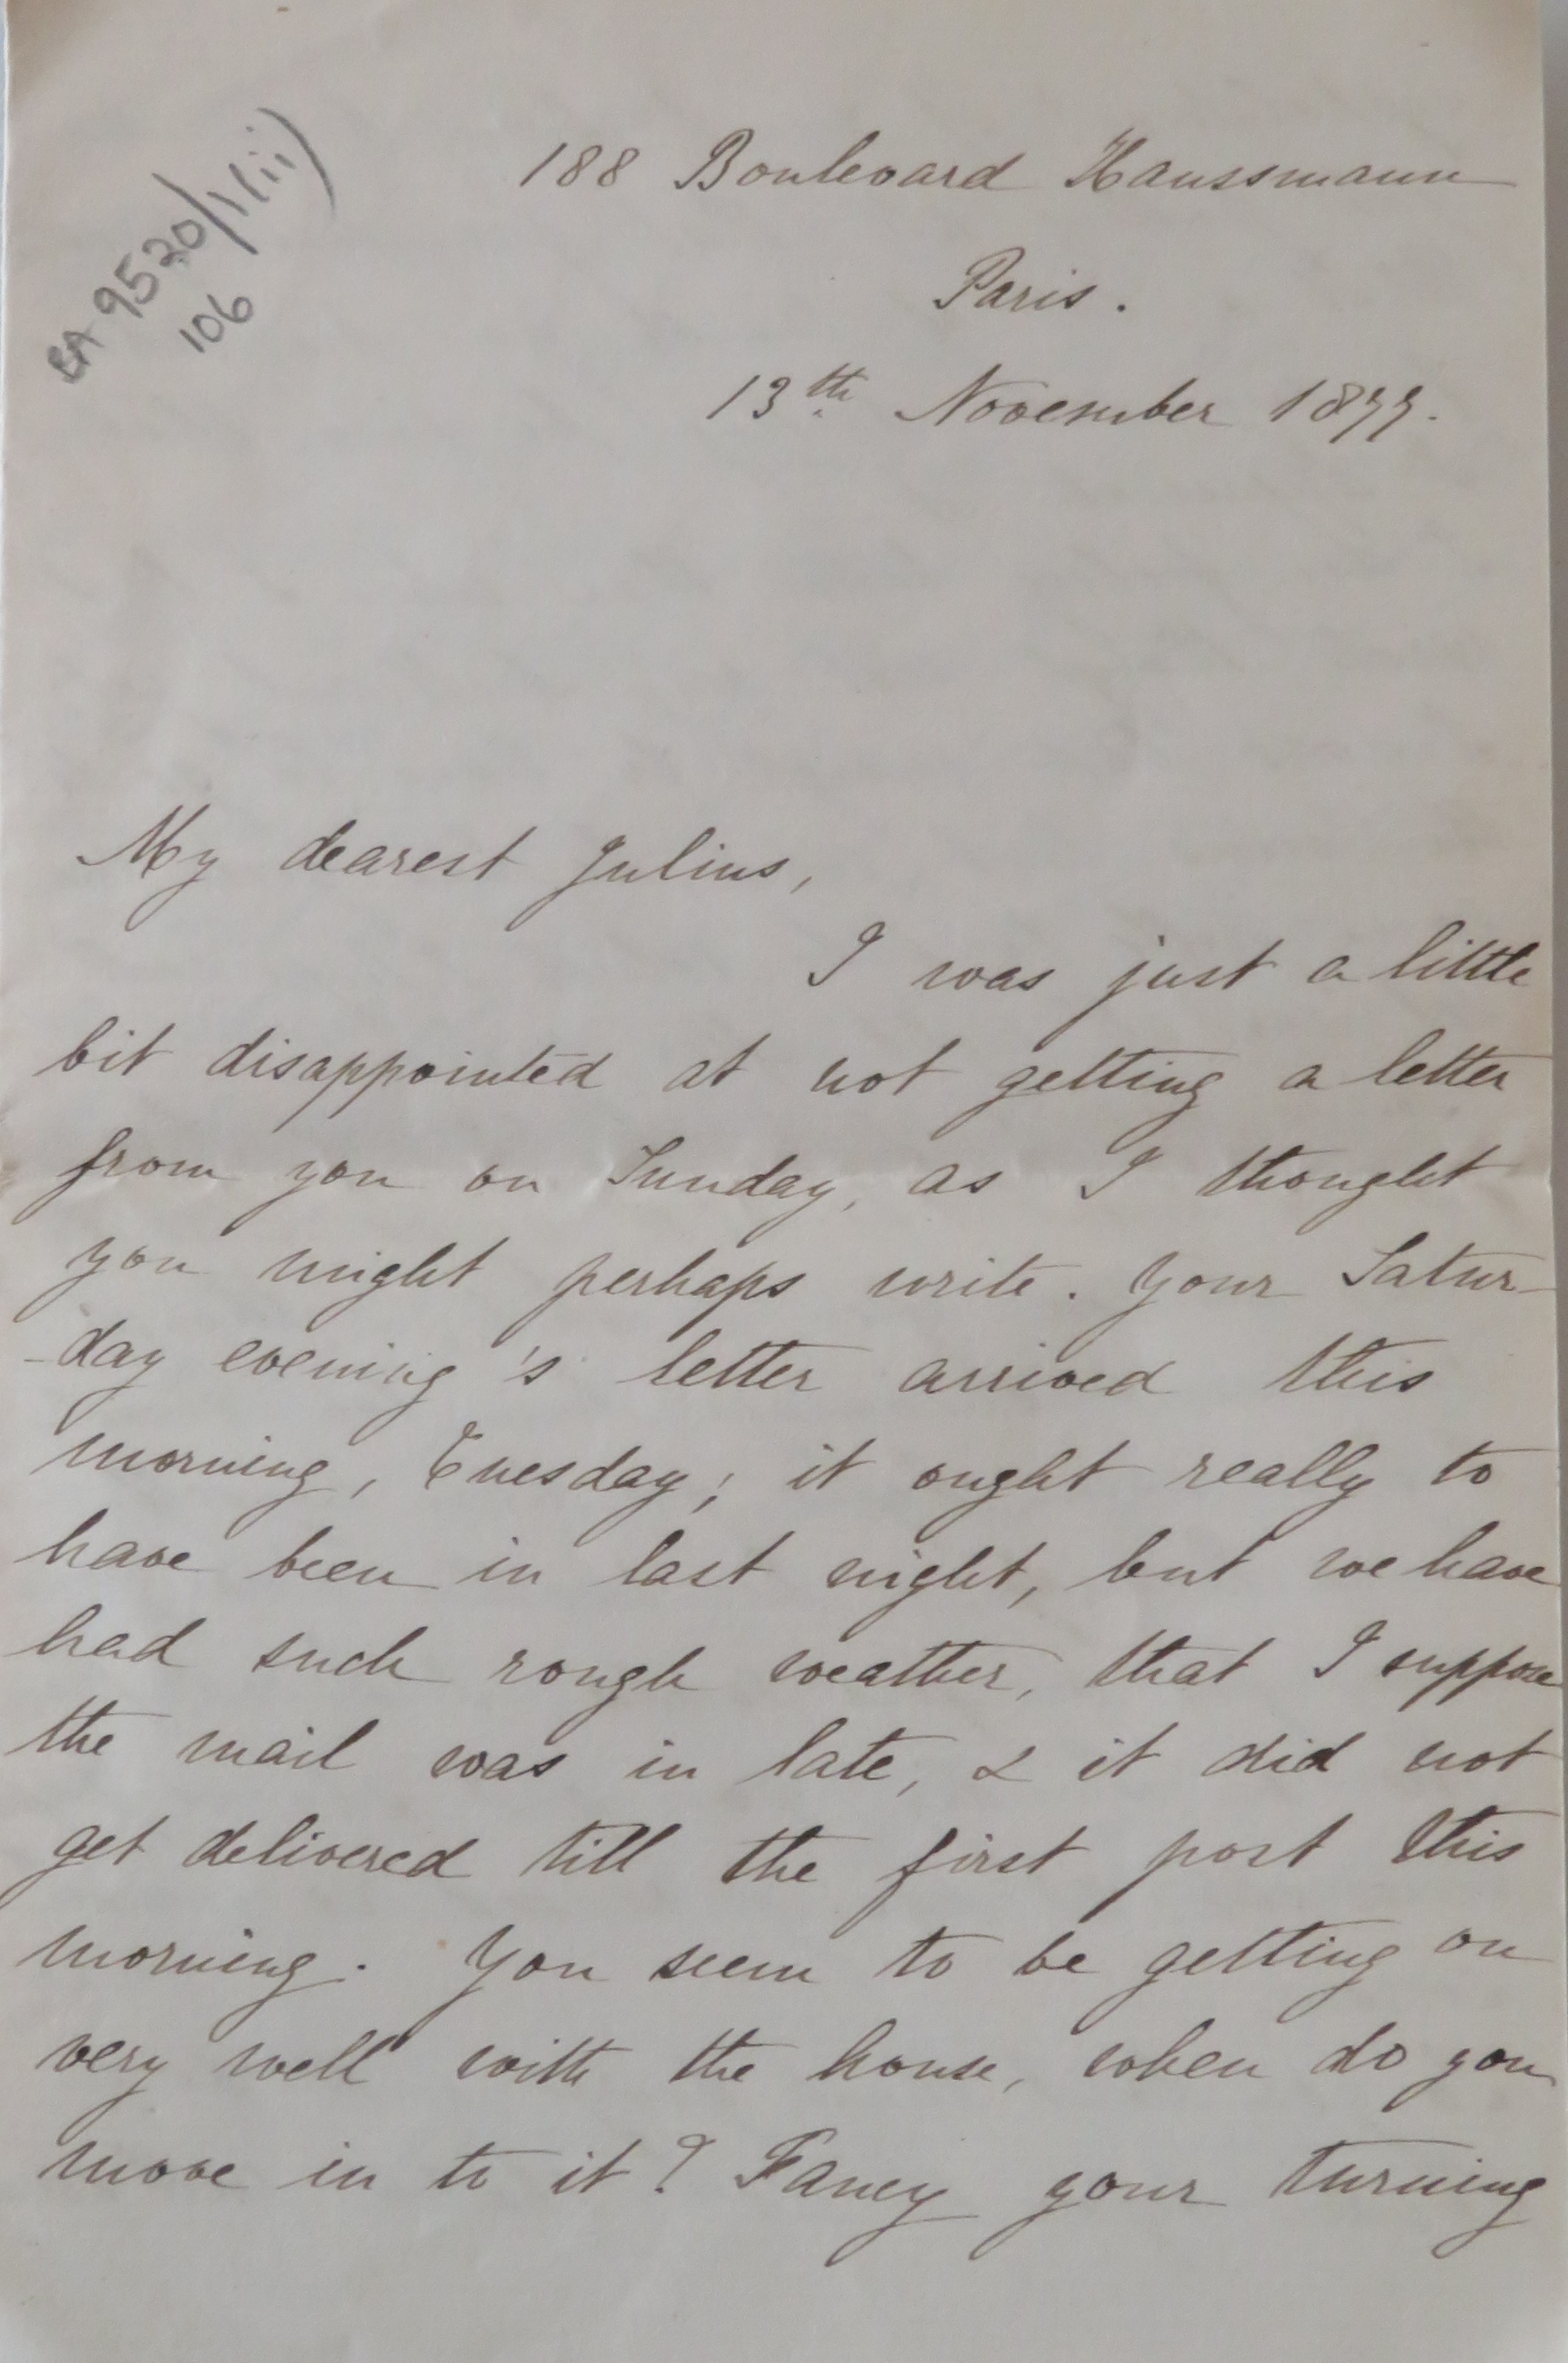 EA 9520/1(ii)
106
188 Boulevard Haussmann
Paris.
13th November 1877.
My dearest Julius,
I was just a little
bit disappointed at not getting a letter
from you on Sunday, as I thought
you might perhaps write. Your Satur-
-day evening's letter arrived this
morning, Tuesday; it ought really to
have been in last night, but we have
had such rough weather, that I suppose
the mail was in late, & it did not
get delivered till the first post this
morning. You seem to be getting on
very well with the house, when do you
move in to it? Fancy your turning